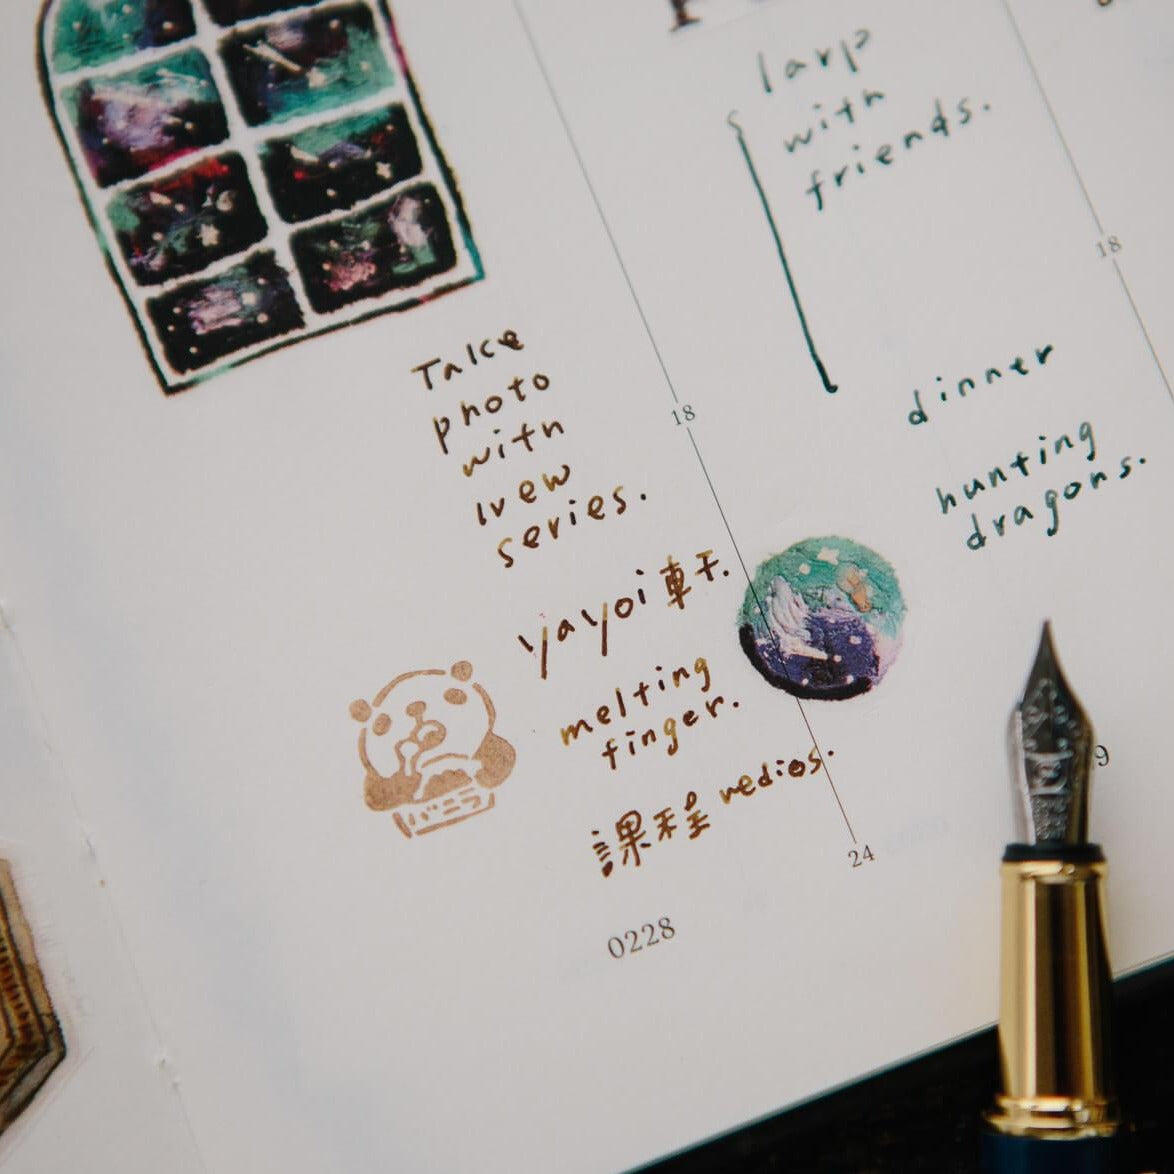 Take
photo
with
new
series.
yayoi軒.
melting
finger.
課程 redios.
バニラ
0228
18
24
larp
with
friends.
dinner
hunting
dragons.
18
9